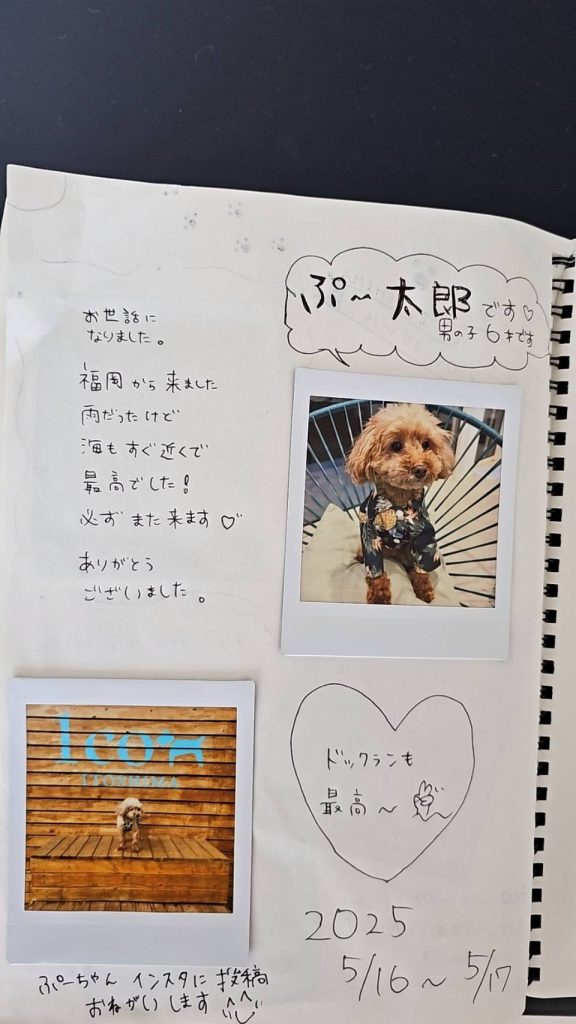 ぷ〜太郎です♡
男の子 6才です
お世話に
なりました。
福岡から来ました
雨だったけど
海もすぐ近くで
最高でした!
必ずまた来ます♡
ありがとう
ございました。
1co
ITOSHIMA
ドックランも
最高〜
2025
5/16〜5/17
ぷーちゃん インスタに投稿
おねがいします^^